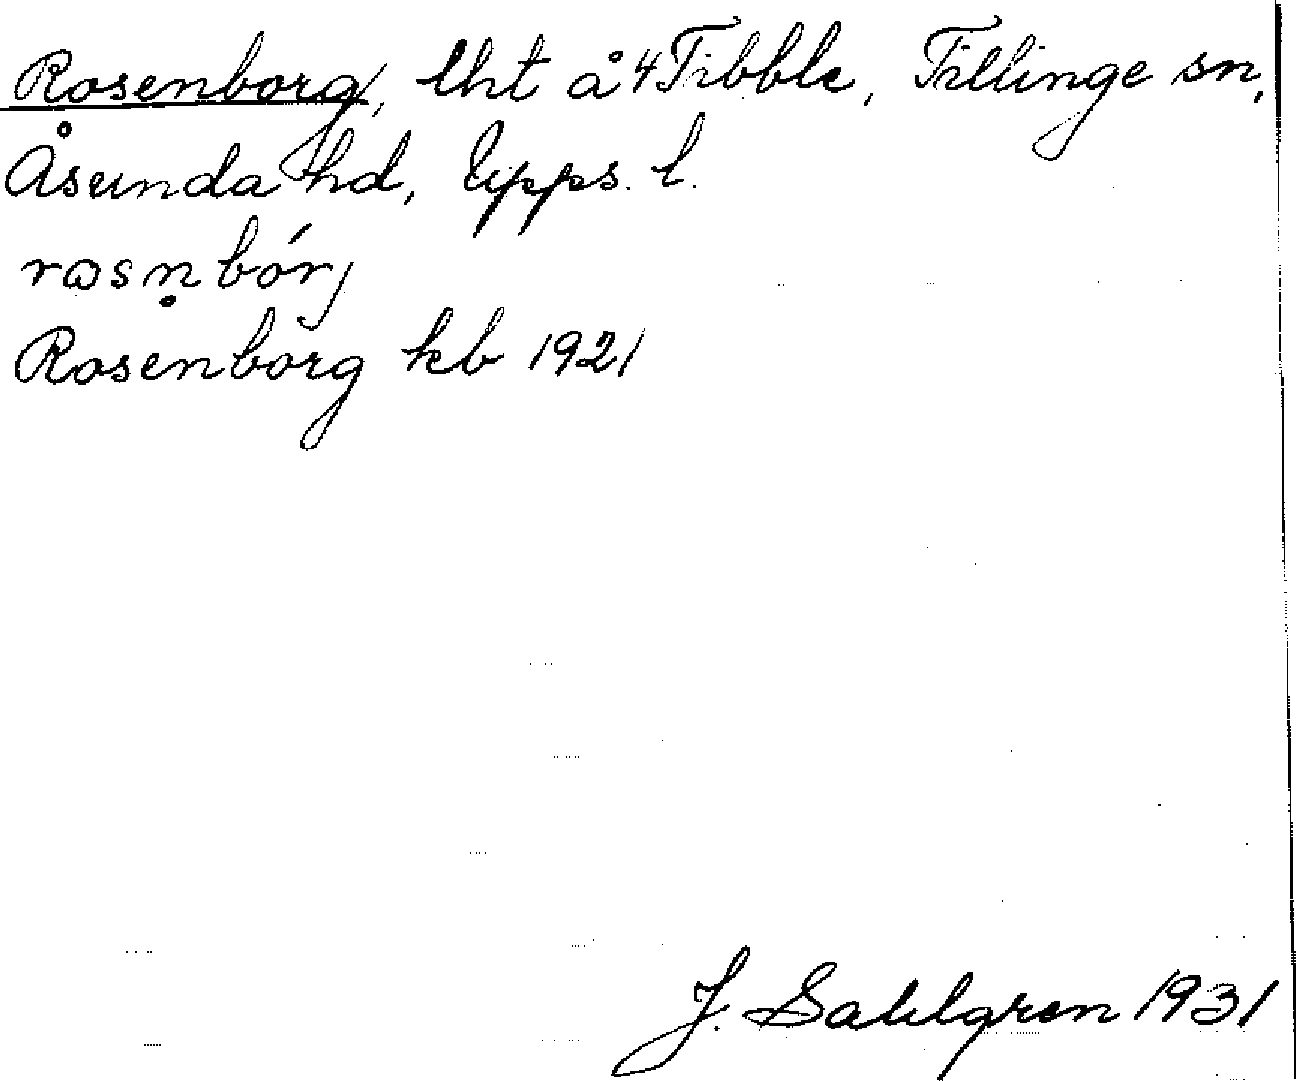 Rosenborg, lht å 4 Tibble, Tillinge sn,
Åsunda hd, Upps. l.
rɷsn̥bórj
Rosenborg kb 1921
J. Sahlgren 1931